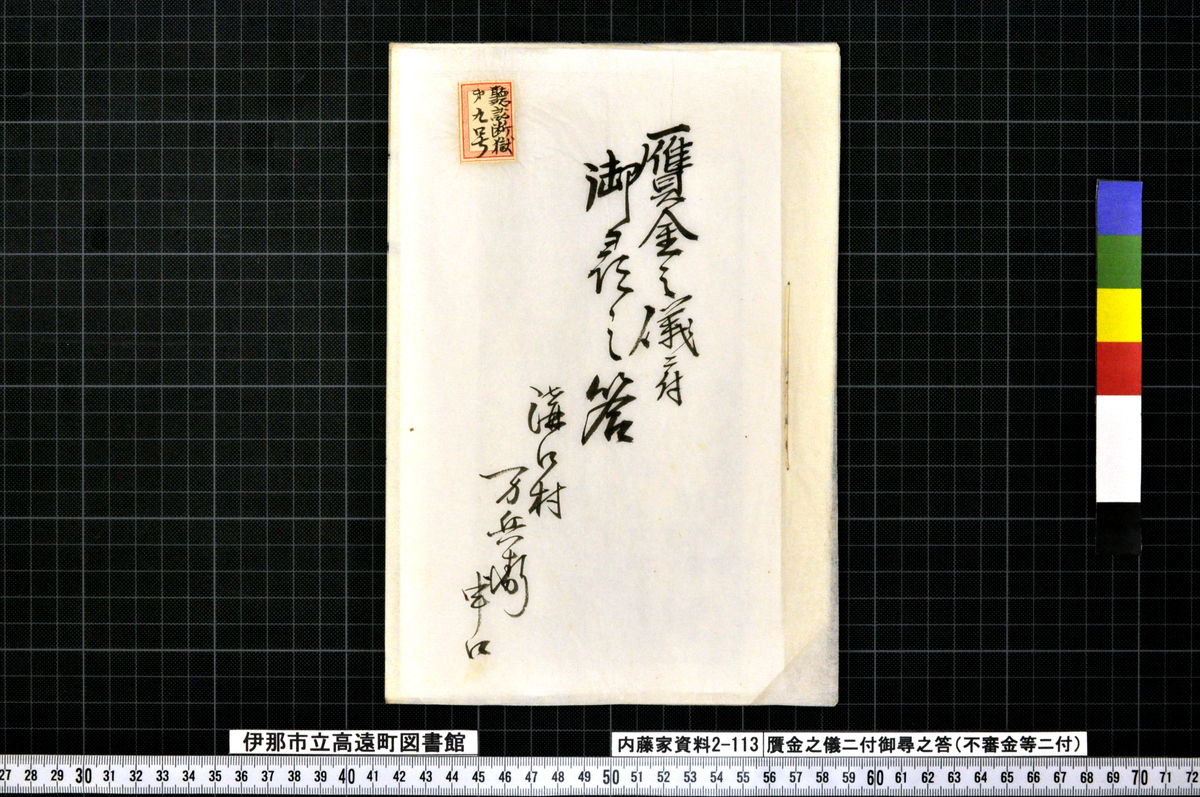 贋金之儀ニ付
御尋之答
溝口村
万兵衛
申口
聽訟断獄
第九号
伊那市立高遠町図書館
内藤家資料2-113
贋金之儀ニ付御尋之答(不審金等ニ付)
27 28 29 30 31 32 33 34 35 36 37 38 39 40 41 42 43 44 45 46 47 48 49 50 51 52 53 54 55 56 57 58 59 60 61 62 63 64 65 66 67 68 69 70 71 72